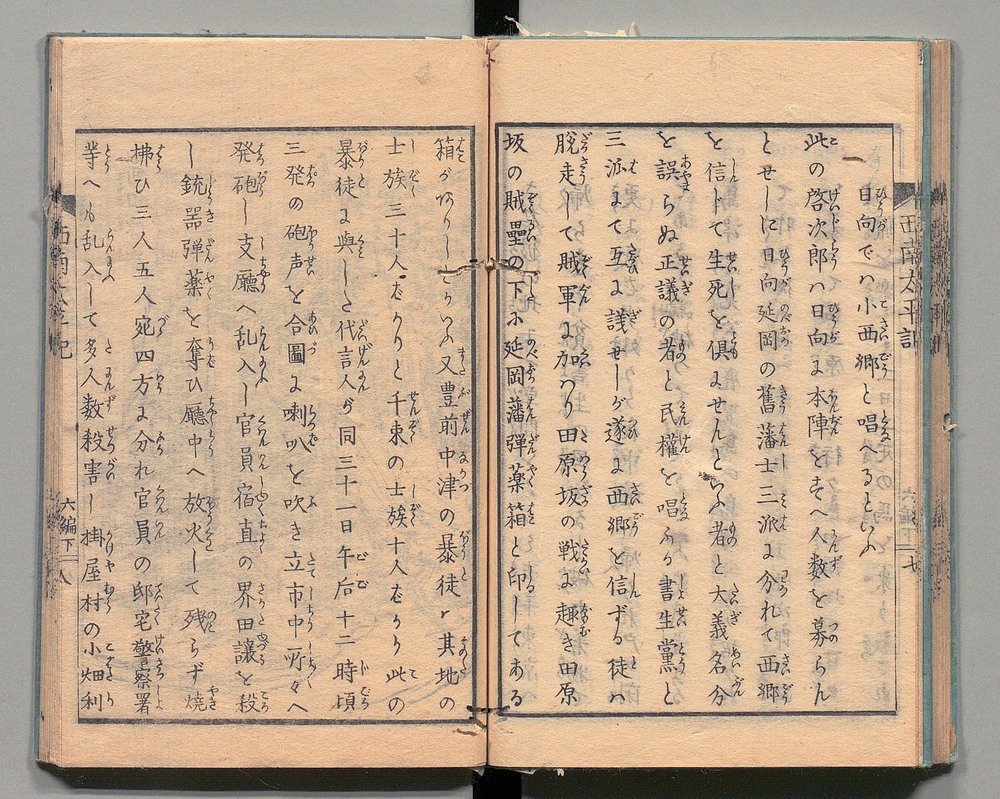 日向でハ小西郷と唱へるといふ
此の啓次郎ハ日向に本陣を居へ人数を募らん
とせしに日向延岡の舊藩士三派に分れて西郷
を信じて生死を俱にせんといふ者と大義名分
を誤らぬ正議の者と民權を唱ふる書生黨と
三派にて互に議せしが遂に西郷を信ずる徒ハ
脱走して賊軍に加ハり田原坂の戦に趣き田原
坂の賊壘の下に延岡藩彈薬箱と印してある
箱がありしといふ又豊前中津の暴徒ハ其地の
士族三十人ばかりと千束の士族十人ばかり此の
暴徒に與した代言人ら同三十一日午后十二時頃
三発の砲声を合圖に喇叭を吹き立市中所々へ
発砲し支廳へ乱入し官員宿直の界田譲を殺
し銃器彈薬を奪ひ廳中へ放火して残らず燒
拂ひ三人五人宛四方に分れ官員の邸宅警察署
等へも乱入して多人数殺害し掛屋村の小畑利
西南太平記
六編下
七
西南太平記
六編下
八